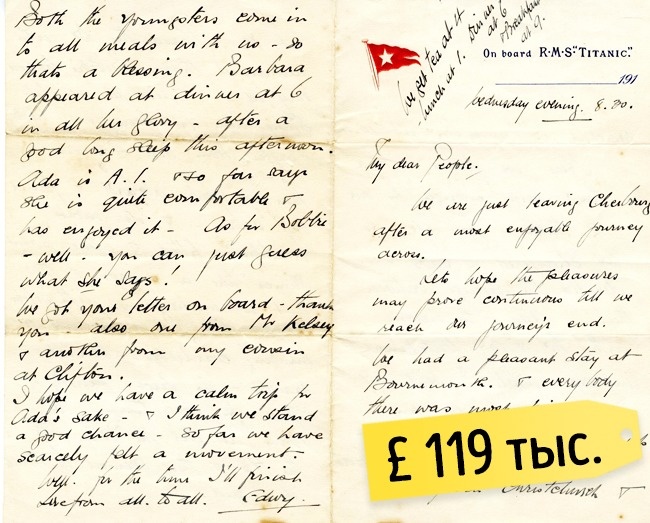 Both the youngsters come in
to all meals with us - so
thats a blessing. Barbara
appeared at dinner at 6
in all her glory - after a
good long sleep this afternoon.
Ada is A.1. & so far says
she is quite comfortable &
has enjoyed it - As for Bobbie
- well - you can just guess
what she says!
We got your letter on board - thank
you - also one from Mr Kelsey
& another from my cousin
at Clifton.
I hope we have a calm trip for
Ada's sake - & I think we stand
a good chance - so far we have
scarcely felt a movement.
Well. for the time I'll finish
Love from all. to all. Edwy.
We get tea at it
lunch at 1. Dinner
at 6
Breakfast
at 9.
On board R·M·S "TITANIC."
191
Wednesday evening. 8.30.
My dear People.
We are just leaving Cherbourg
after a most enjoyable journey
across.
Lets hope the pleasures
may prove continuous till we
reach our journey's end.
We had a pleasant stay at
Bournemouth. & every body
there was most
£ 119 тыс.
Christchurch &